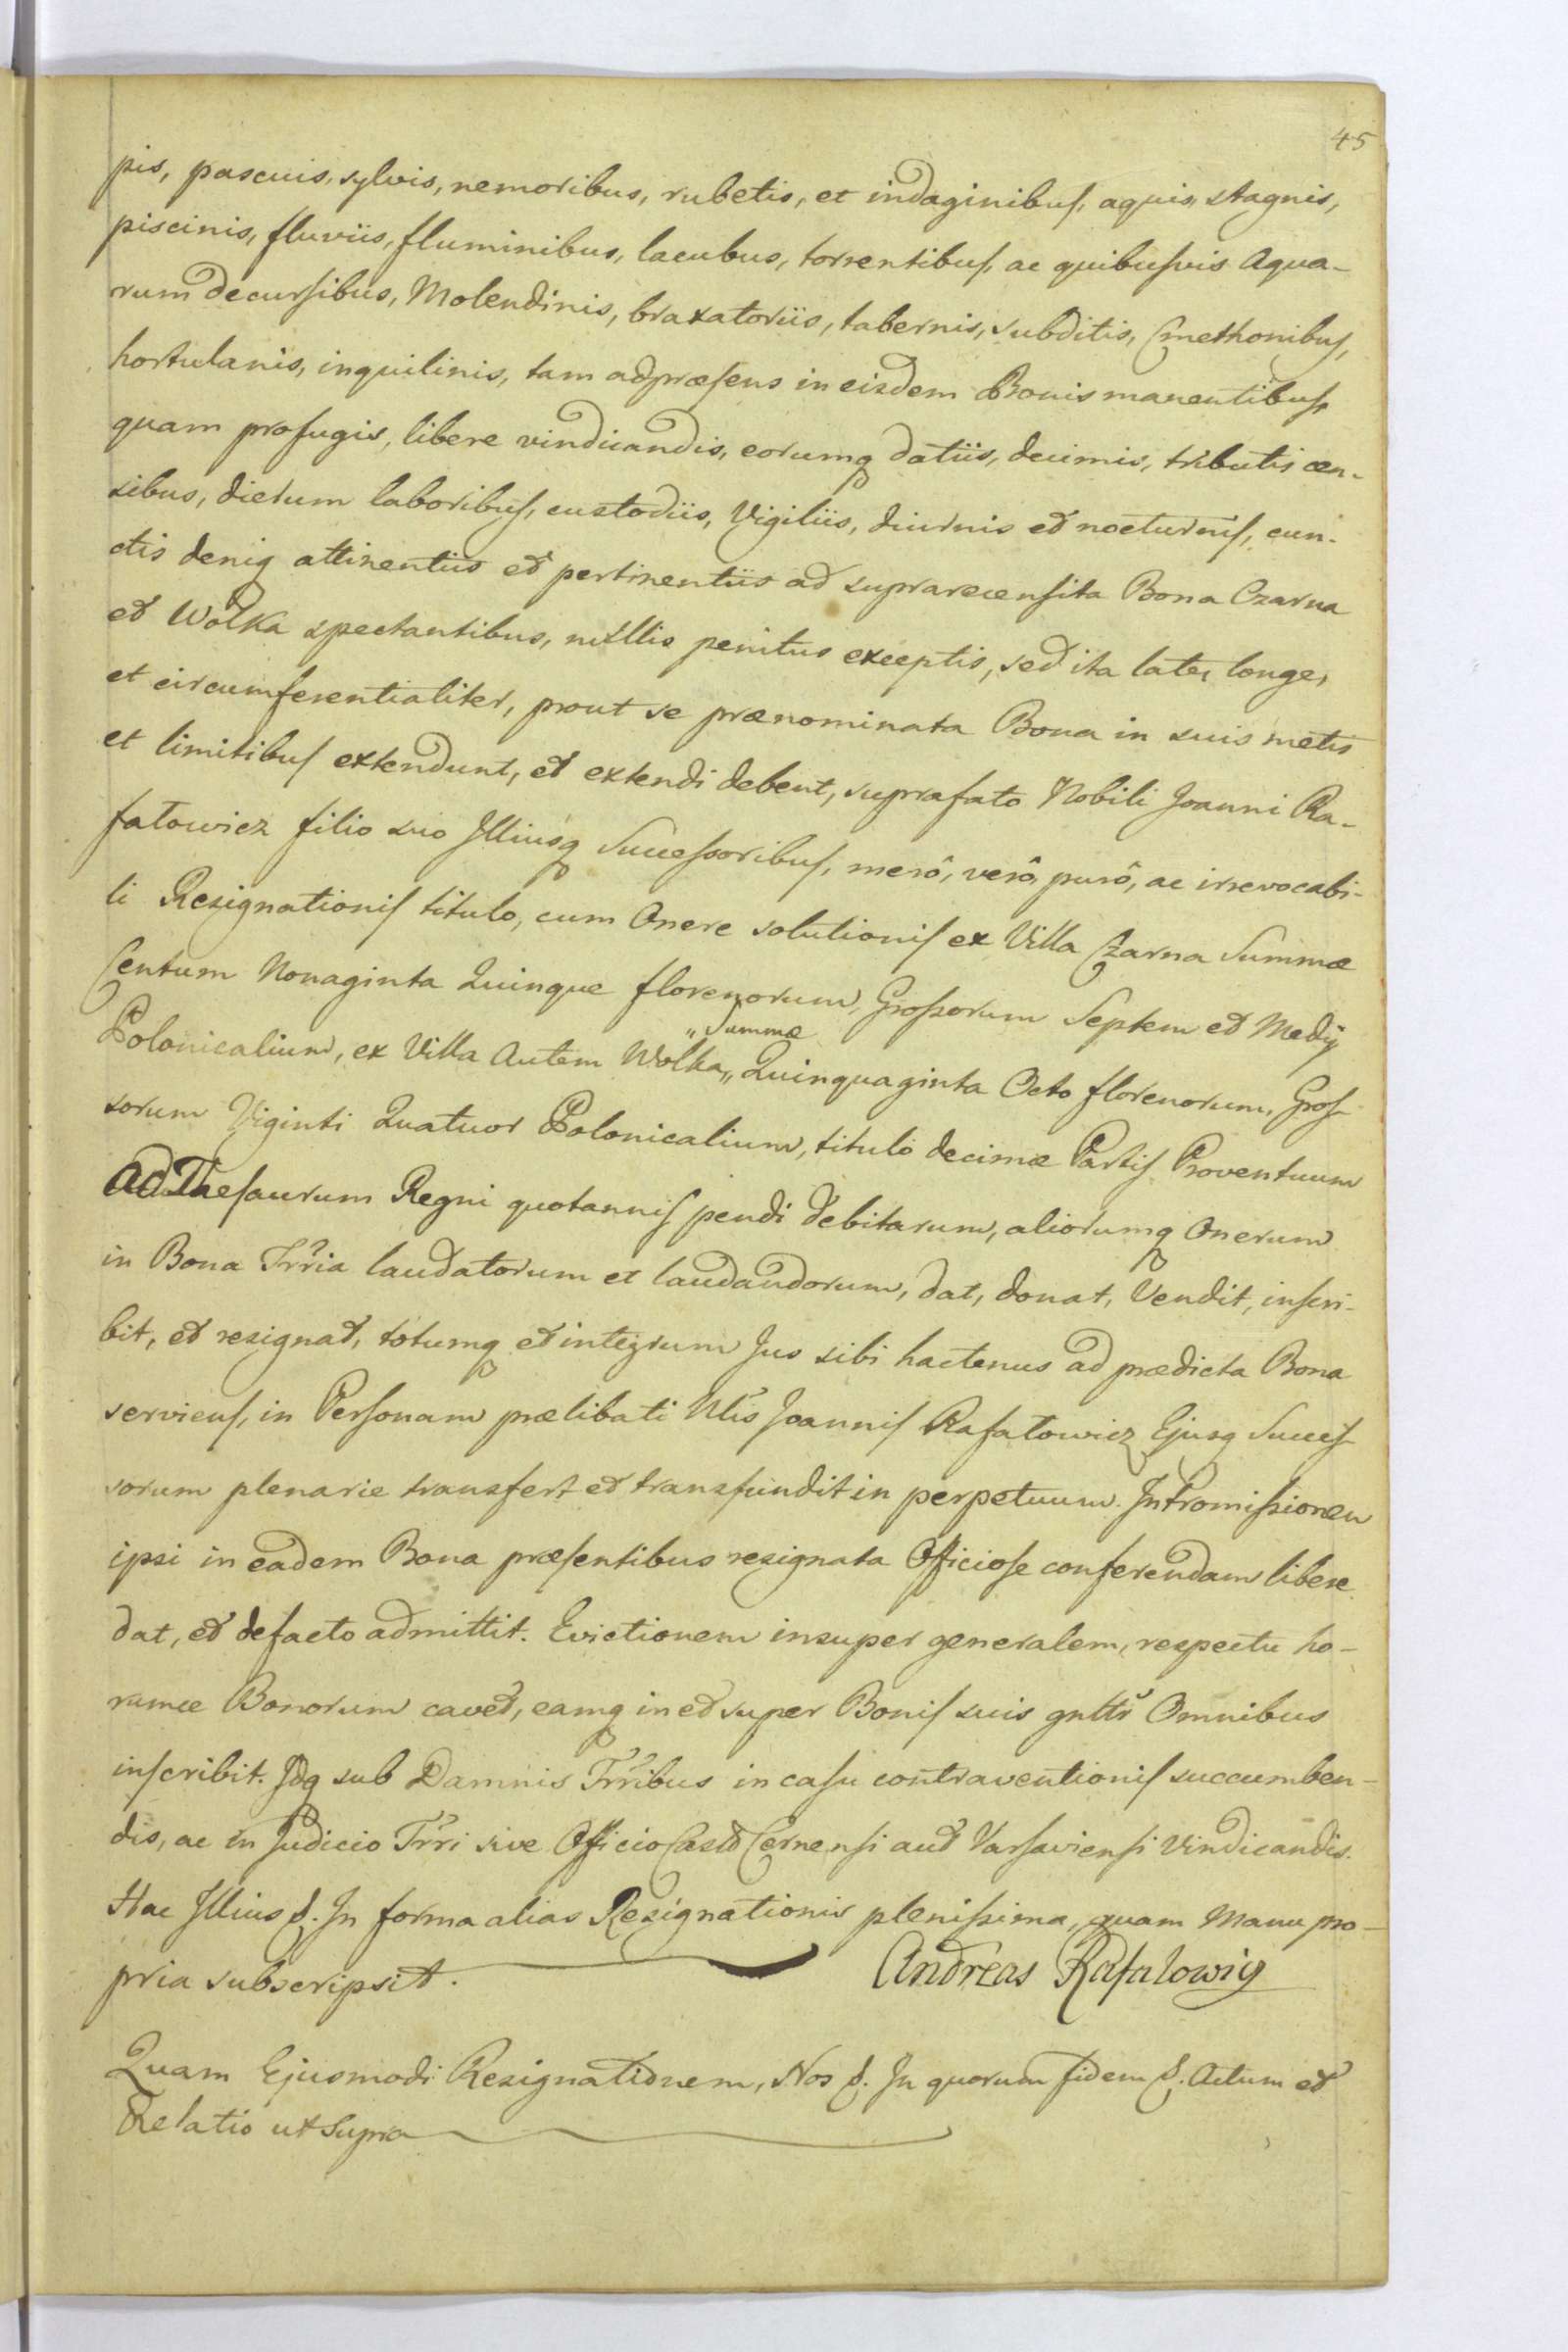 45
pis, pascuis, sylvis, nemoribus, rubetis, et indaginibus, aquis, stagnis,
piscinis, fluviis, fluminibus, lacubus, torrentibus, ac quibusvis Aqua-
rum decursibus, Molendinis, braxatoriis, tabernis, subditis, Cmethonibus,
hortulanis, inquilinis, tam adpræsens in eisdem Bonis manentibus,
quam profugis, libere vindicandis, eorumq datiis, decimis, tributis cen-
sibus, dierum laboribus, custodiis, Vigiliis, diurnis et nocturnis, cun-
ctis deniq attinentiis et pertinentiis ad suprarecensita Bona Czarna
et Wolka spectantibus, nullis penitus exceptis, sed ita late, longe,
et circumferentialiter, prout se prænominata Bona in suis metis
et limitibus extendunt, et extendi debent, suprafato Nobili Joanni Ra-
fałowicz filio suo Illiusq Successoribus, merô, verô, purô, ac irrevocabi-
li Resignationis titulo, cum Onere solutionis ex Villa Czarna Summæ
Centum Nonaginta Quinque florenorum, Grossorum Septem et Medij
Polonicalium, ex Villa Autem Wolka „Summæ Quinquaginta Octo florenorum, Gros-
sorum Viginti Quatuor Polonicalium, titulo decimæ Partis Proventuum
Ad Thesaurum Regni quotannis pendi debitarum, aliorumq Onerum
in Bona Trria laudatorum et laudandorum, dat, donat, Vendit, inscri-
bit, et resignat, totumq et integrum Jus sibi hactenus ad prædicta Bona
serviens, in Personam prælibati Nlis Joannis Rafałowicz Ejusq Succes-
sorum plenarie transfert et transfundit in perpetuum. Intromissionem
ipsi in eadem Bona præsentibus resignata Officiose conferendam libere
dat, et defacto admittit. Evictionem insuper generalem, respectu ho-
rumce Bonorum cavet, eamq in et super Bonis suis gnltr Omnibus
inscribit. Idq sub Damnis Trribus in casu contraventionis succumben-
dis, ac in Judicio Trri sive Officio Castr Cernensi aut Varsaviensi Vindicandis.
Hac Illius S. In forma alias Resignationis plenissima, quam Manu pro-
pria subscripsit. Andreas Rafalowig
Quam Ejusmodi Resignationem, Nos S. In quorum fidem S. Actum et
Relatio ut Supra